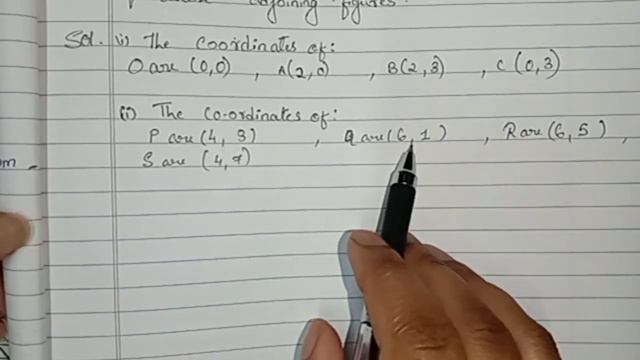 adjoining figures.
Sol. (i) The coordinates of:
O are (0,0) , A(2,0) , B(2,3) , C (0,3)
(ii) The Co-ordinates of:
P are (4, 3) , Q are (6,1) , R are (6,5) ,
S are (4,7)